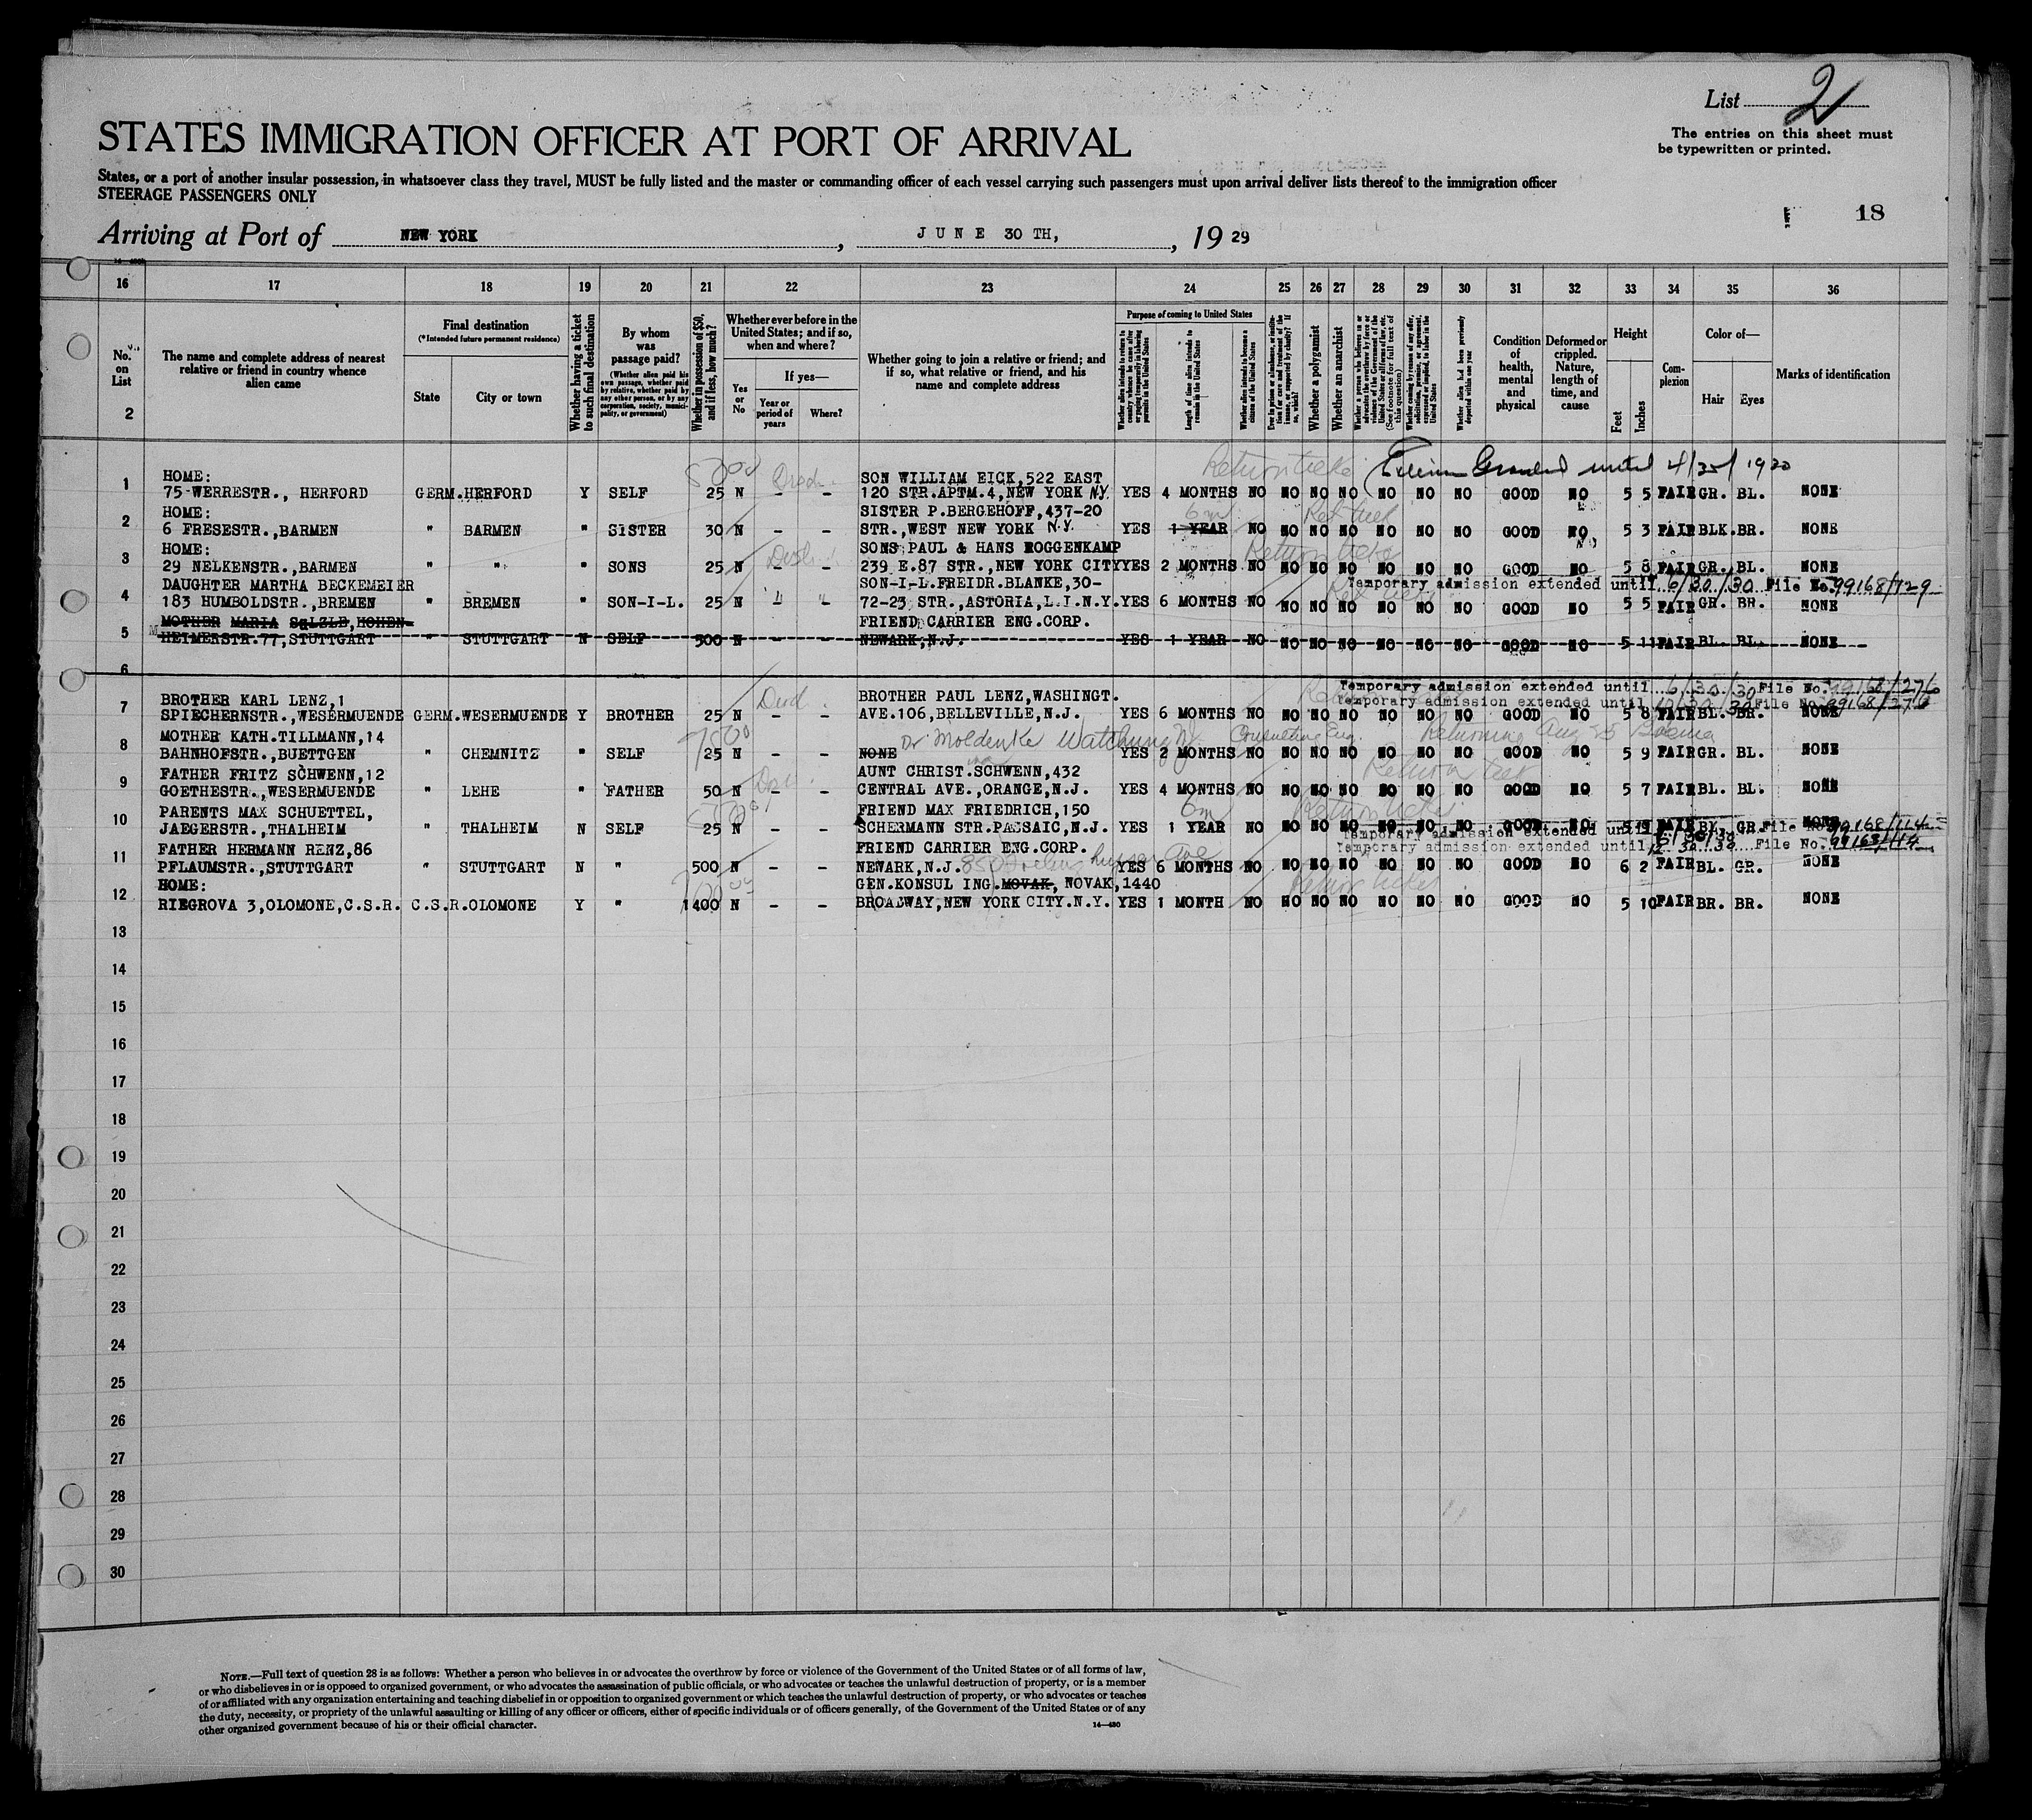 List 2
The entries on this sheet must
be typewritten or printed.
STATES IMMIGRATION OFFICER AT PORT OF ARRIVAL
States, or a port of another insular possession, in whatsoever class they travel, MUST be fully listed and the master or commanding officer of each vessel carrying such passengers must upon arrival deliver lists thereof to the immigration officer
STEERAGE PASSENGERS ONLY
18
Arriving at Port of NEW YORK, JUNE 30 TH, 1929
16 17 18 19 20 21 22 23 24 25 26 27 28 29 30 31 32 33 34 35 36
No. on List
2
The name and complete address of nearest relative or friend in country whence alien came
Final destination
(*Intended future permanent residence)
State
City or town
Whether having a ticket to such final destination
By whom was passage paid?
(Whether alien paid his own passage, whether paid by relative, whether paid by any other person, or by any corporation, society, municipality, or government)
Whether in possession of $50, and if less, how much?
Whether ever before in the United States; and if so, when and where?
Yes or No
If yes—
Year or period of years
Where?
Whether going to join a relative or friend; and if so, what relative or friend, and his name and complete address
Purpose of coming to United States
Length of time alien intends to remain in the United States
Whether alien intends to become a citizen of the United States
Whether a polygamist
Whether an anarchist
(See footnote for full text of this question)
Whether alien had been previously deported within one year
Condition of health, mental and physical
Deformed or crippled. Nature, length of time, and cause
Height
Feet
Inches
Complexion
Color of—
Hair
Eyes
Marks of identification
HOME: SON WILLIAM EICK,522 EAST Return ticket Granted until 4/30/1930
1 75-WERRESTR., HERFORD GERM. HERFORD Y SELF 25 N - - 120 STR.APTM.4,NEW YORK N.Y. YES 4 MONTHS NO NO NO NO NO NO NO GOOD NO 5 5 FAIR GR. BL. NONE
HOME: SISTER P.BERGEHOFF,437-20 6m
2 6 FRESESTR.,BARMEN " BARMEN " SISTER 30 N - - STR.,WEST NEW YORK N.Y. YES 1 YEAR NO NO NO NO NO NO NO GOOD NO 5 3 FAIR BLK. BR. NONE
HOME: SONS PAUL & HANS ROGGENKAMP Return ticket
3 29 NELKENSTR.,BARMEN " " " SONS 25 N - - 239 E.87 STR.,NEW YORK CITY YES 2 MONTHS NO NO NO NO NO NO NO GOOD NO 5 8 FAIR GR. BL. NONE
DAUGHTER MARTHA BECKEMEIER SON-I-L.FREIDR.BLANKE,30- Temporary admission extended until 6/30/30 File No. 99168/129
4 183 HUMBOLDSTR.,BREMEN " BREMEN " SON-I-L. 25 N " " 72-23 STR.,ASTORIA,L.I.N.Y. YES 6 MONTHS NO NO NO NO NO NO NO GOOD NO 5 5 FAIR GR. BR. NONE
MOTHER MARIA SQLZLE,HOHEN- FRIEND CARRIER ENG.CORP.
5 HEIMERSTR.77,STUTTGART " STUTTGART N SELF 500 N NEWARK,N.J. YES 1 YEAR NO NO NO NO NO NO NO GOOD NO 5 11 FAIR BL. BL. NONE
6
Temporary admission extended until 6/30/30 File No. 99168/276
BROTHER KARL LENZ,1 BROTHER PAUL LENZ,WASHINGT. Temporary admission extended until 12/30/30 File No. 99168/276
7 SPIECHERNSTR.,WESERMUENDE GERM. WESERMUENDE Y BROTHER 25 N - - AVE.106,BELLEVILLE,N.J. YES 6 MONTHS NO NO NO NO NO NO NO GOOD NO 5 8 FAIR BL. BR. NONE
MOTHER KATH.TILLMANN,14 Dr Moldenke Watchung NJ Consulting Eng. Returning Aug
8 BAHNHOFSTR.,BUETTGEN " CHEMNITZ " SELF 25 N - - NONE YES 2 MONTHS NO NO NO NO NO NO NO GOOD NO 5 9 FAIR GR. BL. NONE
FATHER FRITZ SCHWENN,12 AUNT CHRIST.SCHWENN,432 Return ticket
9 GOETHESTR.,WESERMUENDE " LEHE " FATHER 50 N - - CENTRAL AVE.,ORANGE,N.J. YES 4 MONTHS NO NO NO NO NO NO NO GOOD NO 5 7 FAIR BL. BL. NONE
PARENTS MAX SCHUETTEL, FRIEND MAX FRIEDRICH,150 6m Return ticket
10 JAEGERSTR.,THALHEIM " THALHEIM N SELF 25 N - - SCHERMANN STR.PASSAIC,N.J. YES 1 YEAR NO NO NO NO NO NO NO GOOD NO FAIR BL. GR. NONE
Temporary admission extended until 6/30/30 File No. 99168/114
FATHER HERMANN RENZ,86 FRIEND CARRIER ENG.CORP. Temporary admission extended until 12.30.30 File No. 99168/114
11 PFLAUMSTR.,STUTTGART " STUTTGART N " 500 N - - NEWARK,N.J. 850 Frelinghuysen Ave YES 6 MONTHS NO NO NO NO NO NO NO GOOD NO 6 2 FAIR BL. GR. NONE
HOME: GEN.KONSUL ING.MOVAK, NOVAK,1440 Return ticket
12 RIEGROVA 3,OLOMONE,C.S.R. C.S.R. OLOMONE Y " 1400 N - - BROADWAY,NEW YORK CITY.N.Y. YES 1 MONTH NO NO NO NO NO NO NO GOOD NO 5 10 FAIR BR. BR. NONE
13
14
15
16
17
18
19
20
21
22
23
24
25
26
27
28
29
30
NOTE.—Full text of question 28 is as follows: Whether a person who believes in or advocates the overthrow by force or violence of the Government of the United States or of all forms of law,
or who disbelieves in or is opposed to organized government, or who advocates the assassination of public officials, or who advocates or teaches the unlawful destruction of property, or is a member
of or affiliated with any organization entertaining and teaching disbelief in or opposition to organized government or which teaches the unlawful destruction of property, or who advocates or teaches
the duty, necessity, or propriety of the unlawful assaulting or killing of any officer or officers, either of specific individuals or of officers generally, of the Government of the United States or of any
other organized government because of his or their official character.
14—430